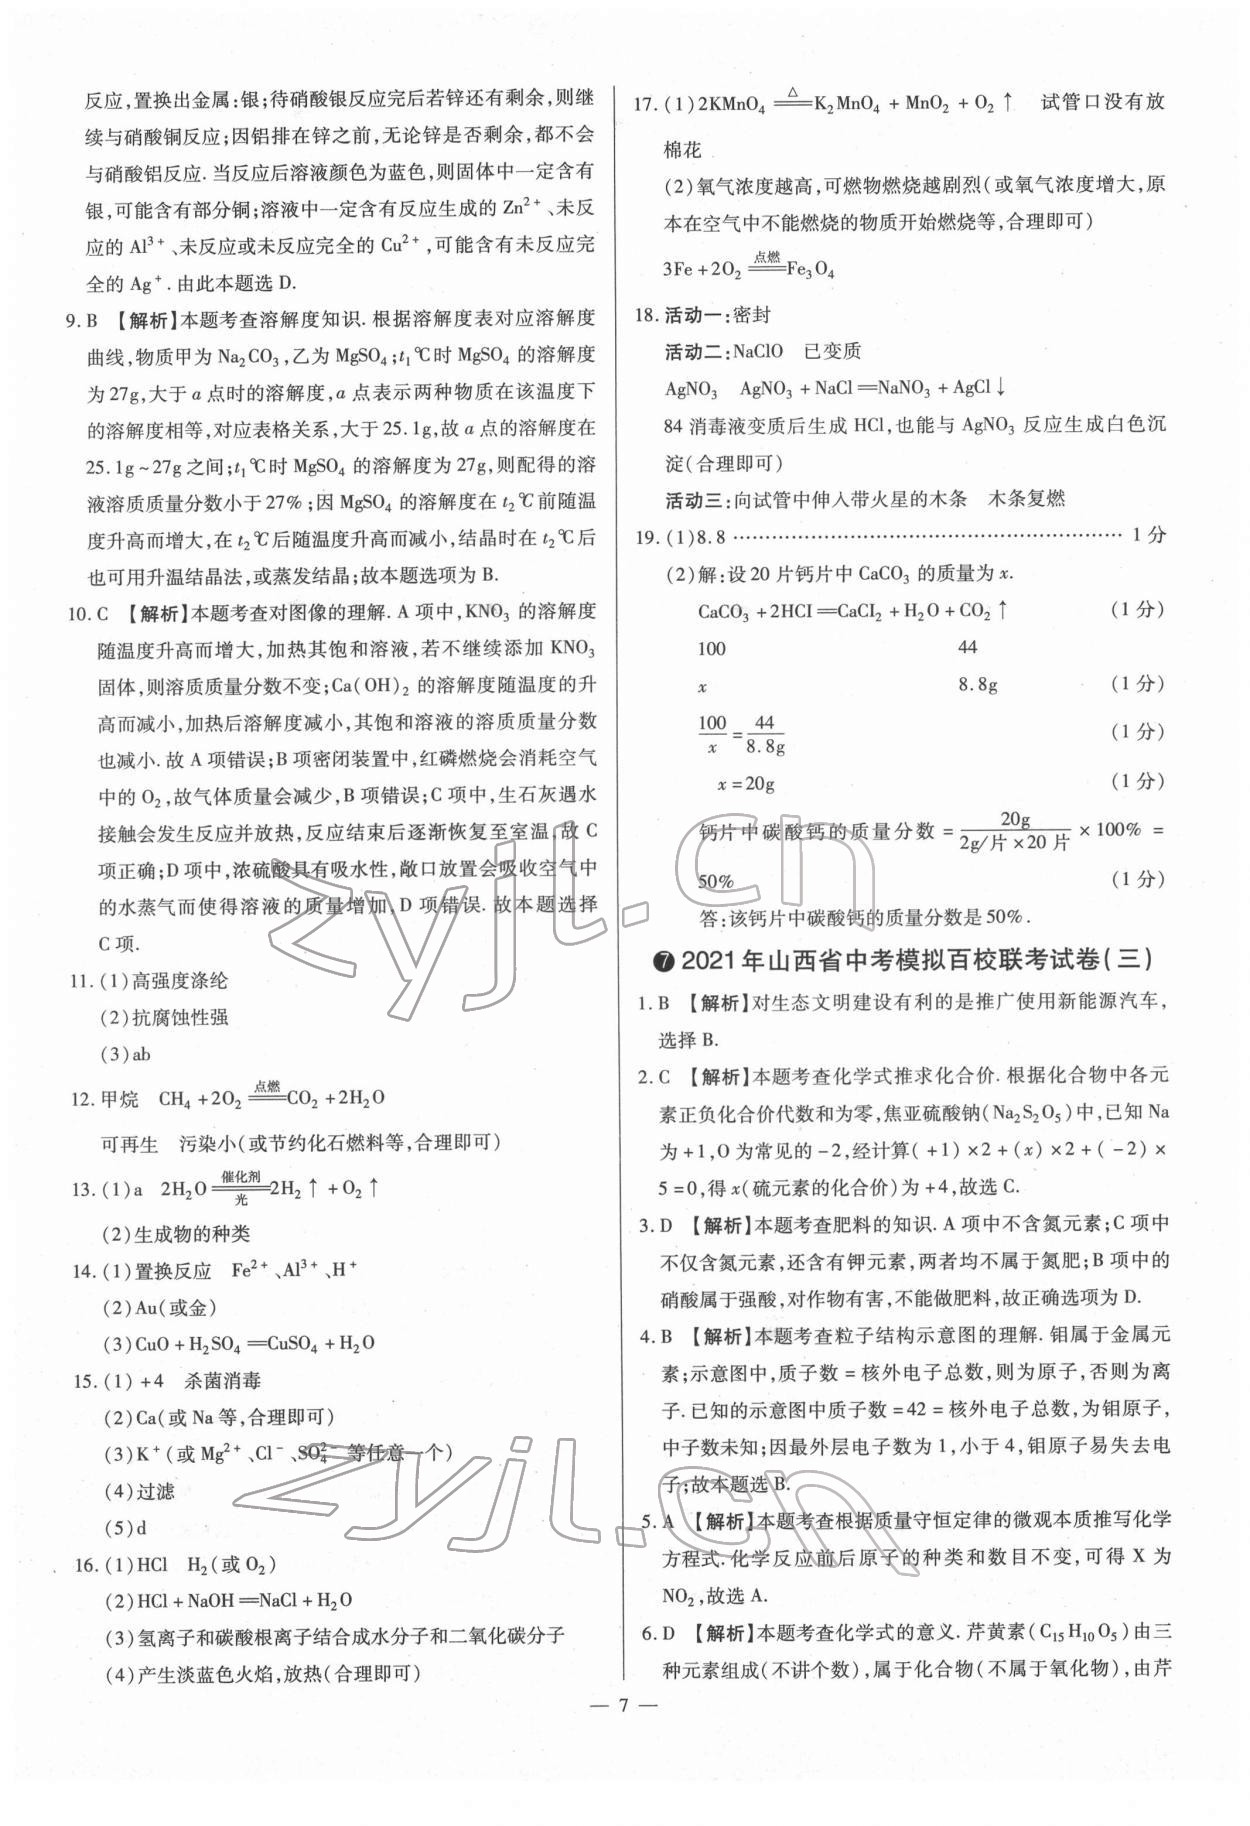 反应,置换出金属:银;待硝酸银反应完后若锌还有剩余,则继
续与硝酸铜反应;因铝排在锌之前,无论锌是否剩余,都不会
与硝酸铝反应.当反应后溶液颜色为蓝色,则固体中一定含有
银,可能含有部分铜;溶液中一定含有反应生成的 Zn²⁺、未反
应的 Al³⁺、未反应或未反应完全的 Cu²⁺,可能含有未反应完
全的 Ag⁺.由此本题选 D.
9. B 【解析】本题考查溶解度知识.根据溶解度表对应溶解度
曲线,物质甲为 Na₂CO₃,乙为 MgSO₄;t₁℃时 MgSO₄ 的溶解度
为 27g,大于 a 点时的溶解度,a 点表示两种物质在该温度下
的溶解度相等,对应表格关系,大于 25.1g,故 a 点的溶解度在
25.1g~27g 之间;t₁℃时 MgSO₄ 的溶解度为 27g,则配得的溶
液溶质质量分数小于 27%;因 MgSO₄ 的溶解度在 t₂℃前随温
度升高而增大,在 t₂℃后随温度升高而减小,结晶时在 t₂℃后
也可用升温结晶法,或蒸发结晶;故本题选项为 B.
10. C 【解析】本题考查对图像的理解.A 项中,KNO₃ 的溶解度
随温度升高而增大,加热其饱和溶液,若不继续添加 KNO₃
固体,则溶质质量分数不变;Ca(OH)₂ 的溶解度随温度的升
高而减小,加热后溶解度减小,其饱和溶液的溶质质量分数
也减小.故 A 项错误;B 项密闭装置中,红磷燃烧会消耗空气
中的 O₂,故气体质量会减少,B 项错误;C 项中,生石灰遇水
接触会发生反应并放热,反应结束后逐渐恢复至室温,故 C
项正确;D 项中,浓硫酸具有吸水性,敞口放置会吸收空气中
的水蒸气而使得溶液的质量增加,D 项错误.故本题选择
C 项.
11. (1)高强度涤纶
(2)抗腐蚀性强
(3)ab
12. 甲烷 CH₄+2O₂ ══点燃══ CO₂+2H₂O
可再生 污染小(或节约化石燃料等,合理即可)
13. (1)a 2H₂O ══催化剂/光══ 2H₂↑+O₂↑
(2)生成物的种类
14. (1)置换反应 Fe²⁺、Al³⁺、H⁺
(2)Au(或金)
(3)CuO+H₂SO₄══CuSO₄+H₂O
15. (1)+4 杀菌消毒
(2)Ca(或 Na 等,合理即可)
(3)K⁺(或 Mg²⁺、Cl⁻、SO₄²⁻ 等任意一个)
(4)过滤
(5)d
16. (1)HCl H₂(或 O₂)
(2)HCl+NaOH══NaCl+H₂O
(3)氢离子和碳酸根离子结合成水分子和二氧化碳分子
(4)产生淡蓝色火焰,放热(合理即可)
17. (1)2KMnO₄ ══△══ K₂MnO₄+MnO₂+O₂↑ 试管口没有放
棉花
(2)氧气浓度越高,可燃物燃烧越剧烈(或氧气浓度增大,原
本在空气中不能燃烧的物质开始燃烧等,合理即可)
3Fe+2O₂ ══点燃══ Fe₃O₄
18. 活动一:密封
活动二:NaClO 已变质
AgNO₃ AgNO₃+NaCl══NaNO₃+AgCl↓
84 消毒液变质后生成 HCl,也能与 AgNO₃ 反应生成白色沉
淀(合理即可)
活动三:向试管中伸入带火星的木条 木条复燃
19. (1)8.8 ………………………………………… 1 分
(2)解:设 20 片钙片中 CaCO₃ 的质量为 x.
CaCO₃+2HCl══CaCl₂+H₂O+CO₂↑ (1 分)
100 44
x 8.8g (1 分)
100/x = 44/8.8g (1 分)
x=20g (1 分)
钙片中碳酸钙的质量分数 = 20g/(2g/片×20 片) ×100% =
50% (1 分)
答:该钙片中碳酸钙的质量分数是 50%.
❼ 2021 年山西省中考模拟百校联考试卷(三)
1. B 【解析】对生态文明建设有利的是推广使用新能源汽车,
选择 B.
2. C 【解析】本题考查化学式推求化合价.根据化合物中各元
素正负化合价代数和为零,焦亚硫酸钠(Na₂S₂O₅)中,已知 Na
为 +1,O 为常见的 -2,经计算(+1)×2+(x)×2+(-2)×
5=0,得 x(硫元素的化合价)为 +4,故选 C.
3. D 【解析】本题考查肥料的知识.A 项中不含氮元素;C 项中
不仅含氮元素,还含有钾元素,两者均不属于氮肥;B 项中的
硝酸属于强酸,对作物有害,不能做肥料,故正确选项为 D.
4. B 【解析】本题考查粒子结构示意图的理解.钼属于金属元
素;示意图中,质子数 = 核外电子总数,则为原子,否则为离
子.已知的示意图中质子数 =42= 核外电子总数,为钼原子,
中子数未知;因最外层电子数为 1,小于 4,钼原子易失去电
子;故本题选 B.
5. A 【解析】本题考查根据质量守恒定律的微观本质推写化学
方程式.化学反应前后原子的种类和数目不变,可得 X 为
NO₂,故选 A.
6. D 【解析】本题考查化学式的意义.芹黄素(C₁₅H₁₀O₅)由三
种元素组成(不讲个数),属于化合物(不属于氧化物),由芹
— 7 —
zyjl.cn
zyjl.cn